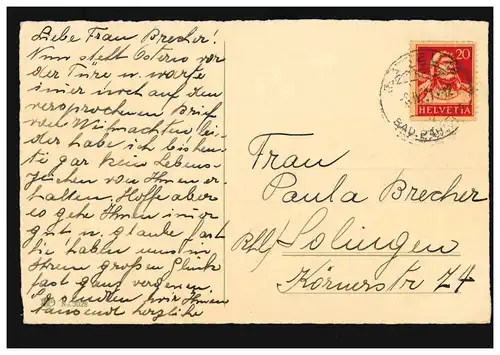 Liebe Frau Brecher!
Nun steht Ostern vor
der Türe u. warte
immer noch auf den
versprochenen Brief
von Weihnachten lei-
der habe ich bis heu-
te gar kein Lebens-
zeichen von Ihnen er-
halten. Hoffe aber
es gehe Ihnen immer
gut u. glaube fast
Sie haben uns in
Ihrem großen Glück
fast ganz vergessen.
wir Ihnen
tausend herzliche
No 3028
20
HELVETIA
BAD. BAH
Frau
Paula Brecher
Rhld/ Solingen
Körnerstr 74